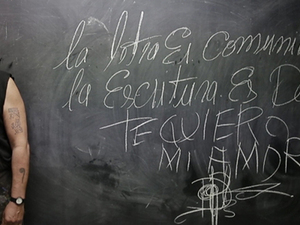 la letra Es Comuni
la Escritura. Es De
TE QUIERO
MI AMOR